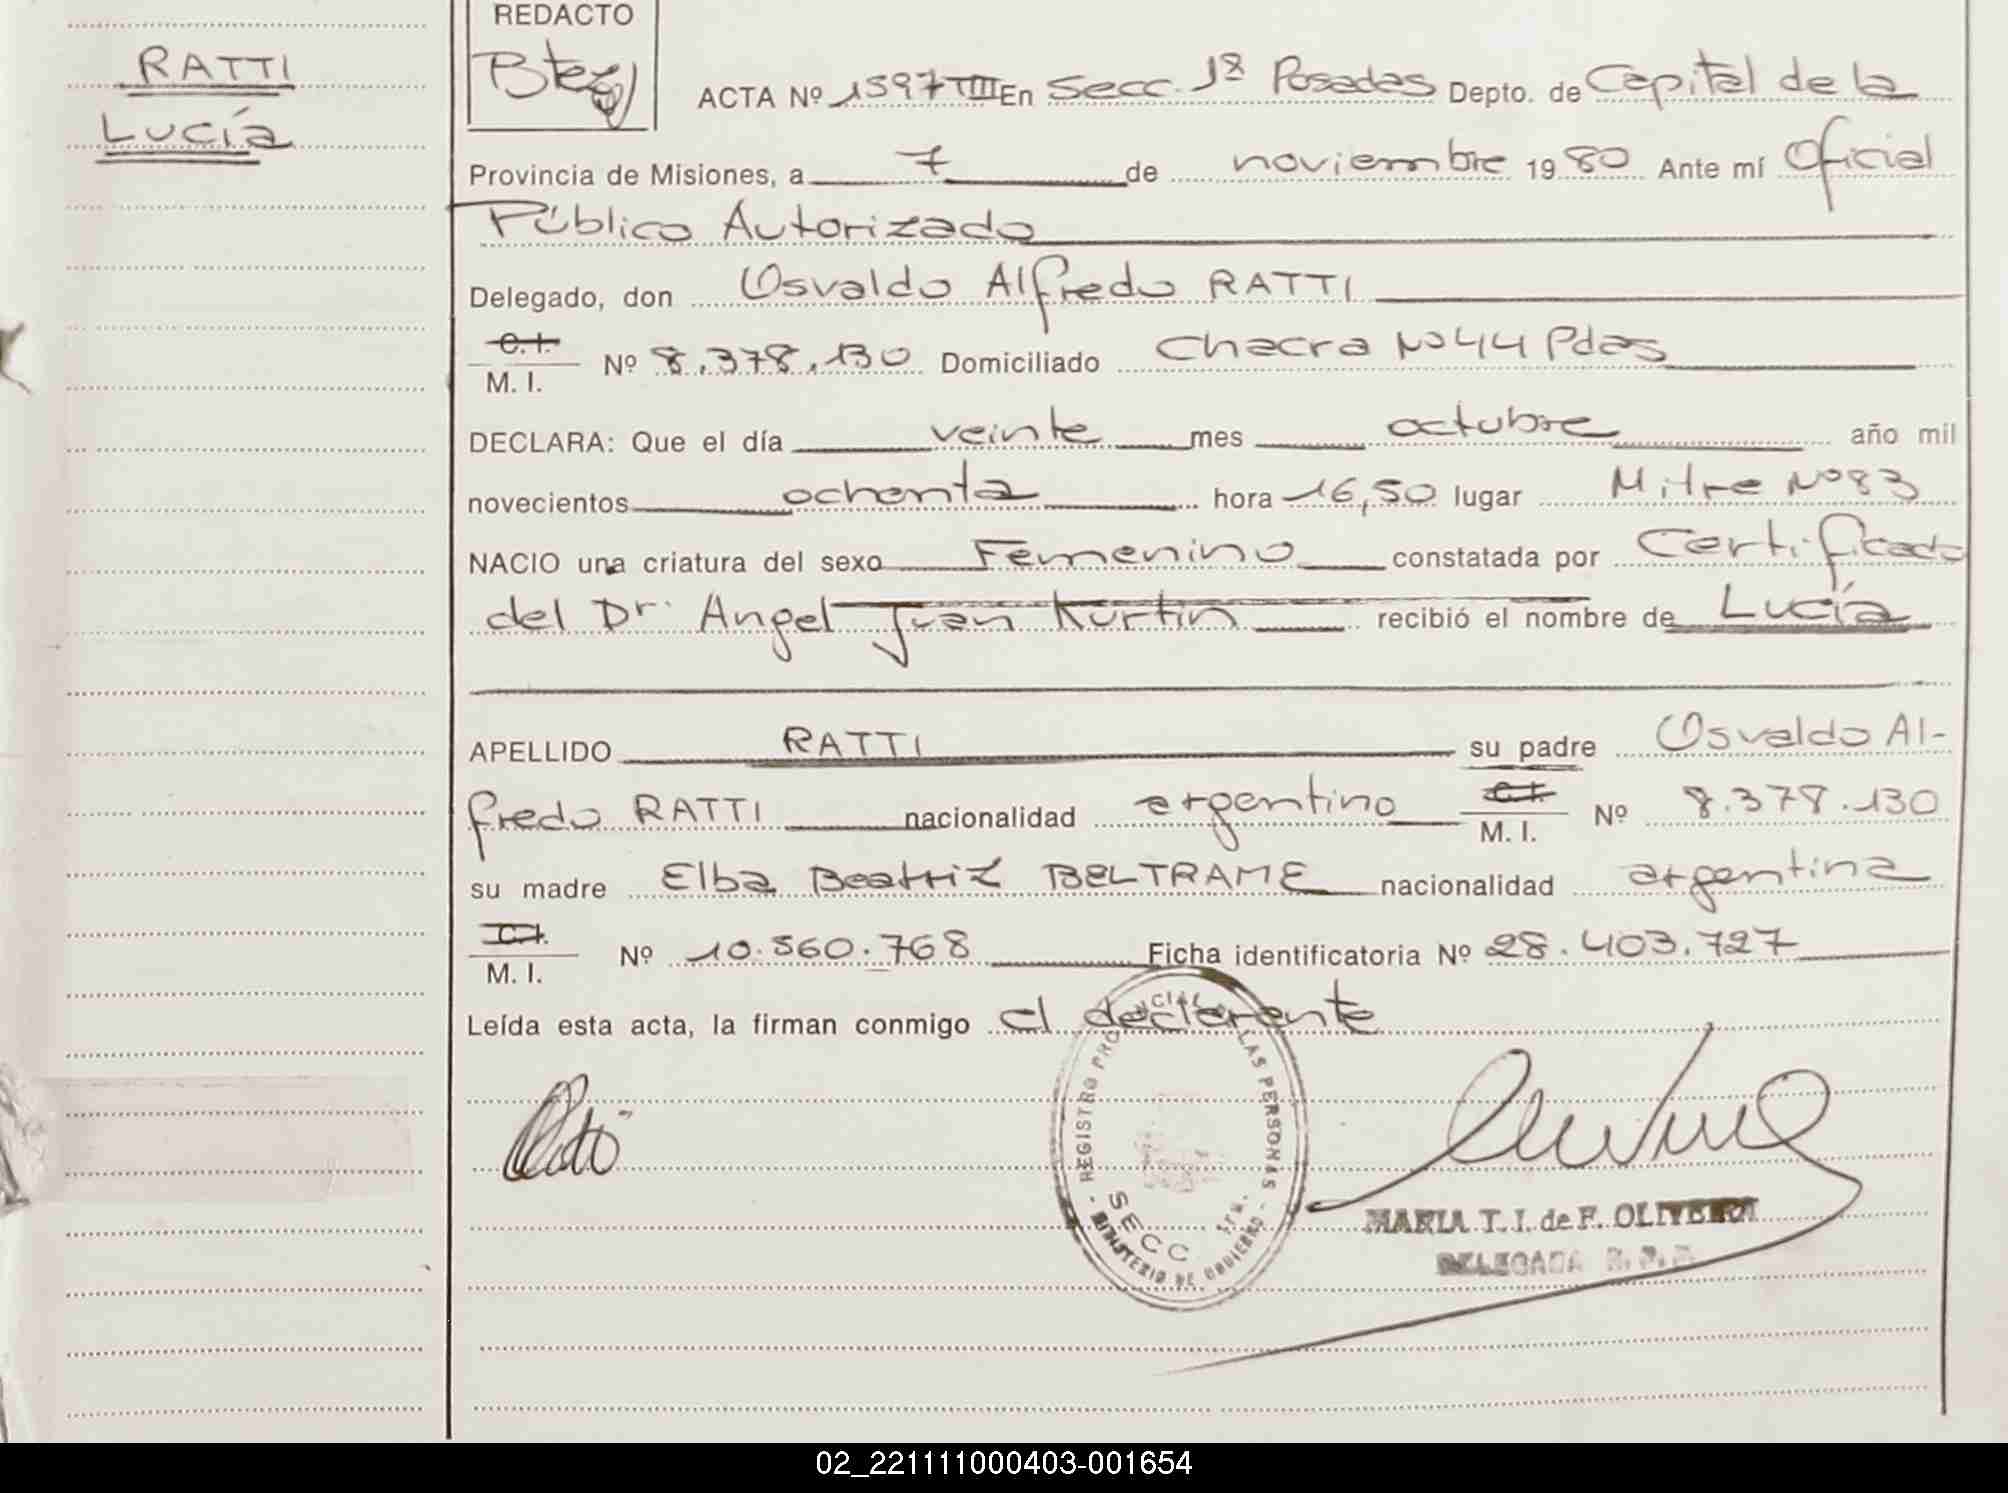 RATTI
Lucía
REDACTO
Btez
ACTA Nº 1597 TIII En Secc. 1ª Posadas Depto. de Capital de la
Provincia de Misiones, a 7 de noviembre 1980 Ante mí Oficial
Público Autorizado
Delegado, don Osvaldo Alfredo RATTI
C. I.
M. I. Nº 8.378.130 Domiciliado Chacra Nº 44 Pdas
DECLARA: Que el día veinte mes octubre año mil
novecientos ochenta hora 16,50 lugar Mitre Nº 83
NACIO una criatura del sexo Femenino constatada por Certificado
del Dr. Angel Juan Kurtin recibió el nombre de Lucía
APELLIDO RATTI su padre Osvaldo Al-
fredo RATTI nacionalidad argentino C. I. M. I. Nº 8.378.130
su madre Elba Beatriz BELTRAME nacionalidad argentina
C. I.
M. I. Nº 10.560.768 Ficha identificatoria Nº 28.403.727
Leída esta acta, la firman conmigo el declarante
REGISTRO PROVINCIAL DE LAS PERSONAS
SECC
MINISTERIO DE GOBIERNO
MARIA T. I. de F. OLIVEIRA
DELEGADA R. P. P.
02_221111000403-001654